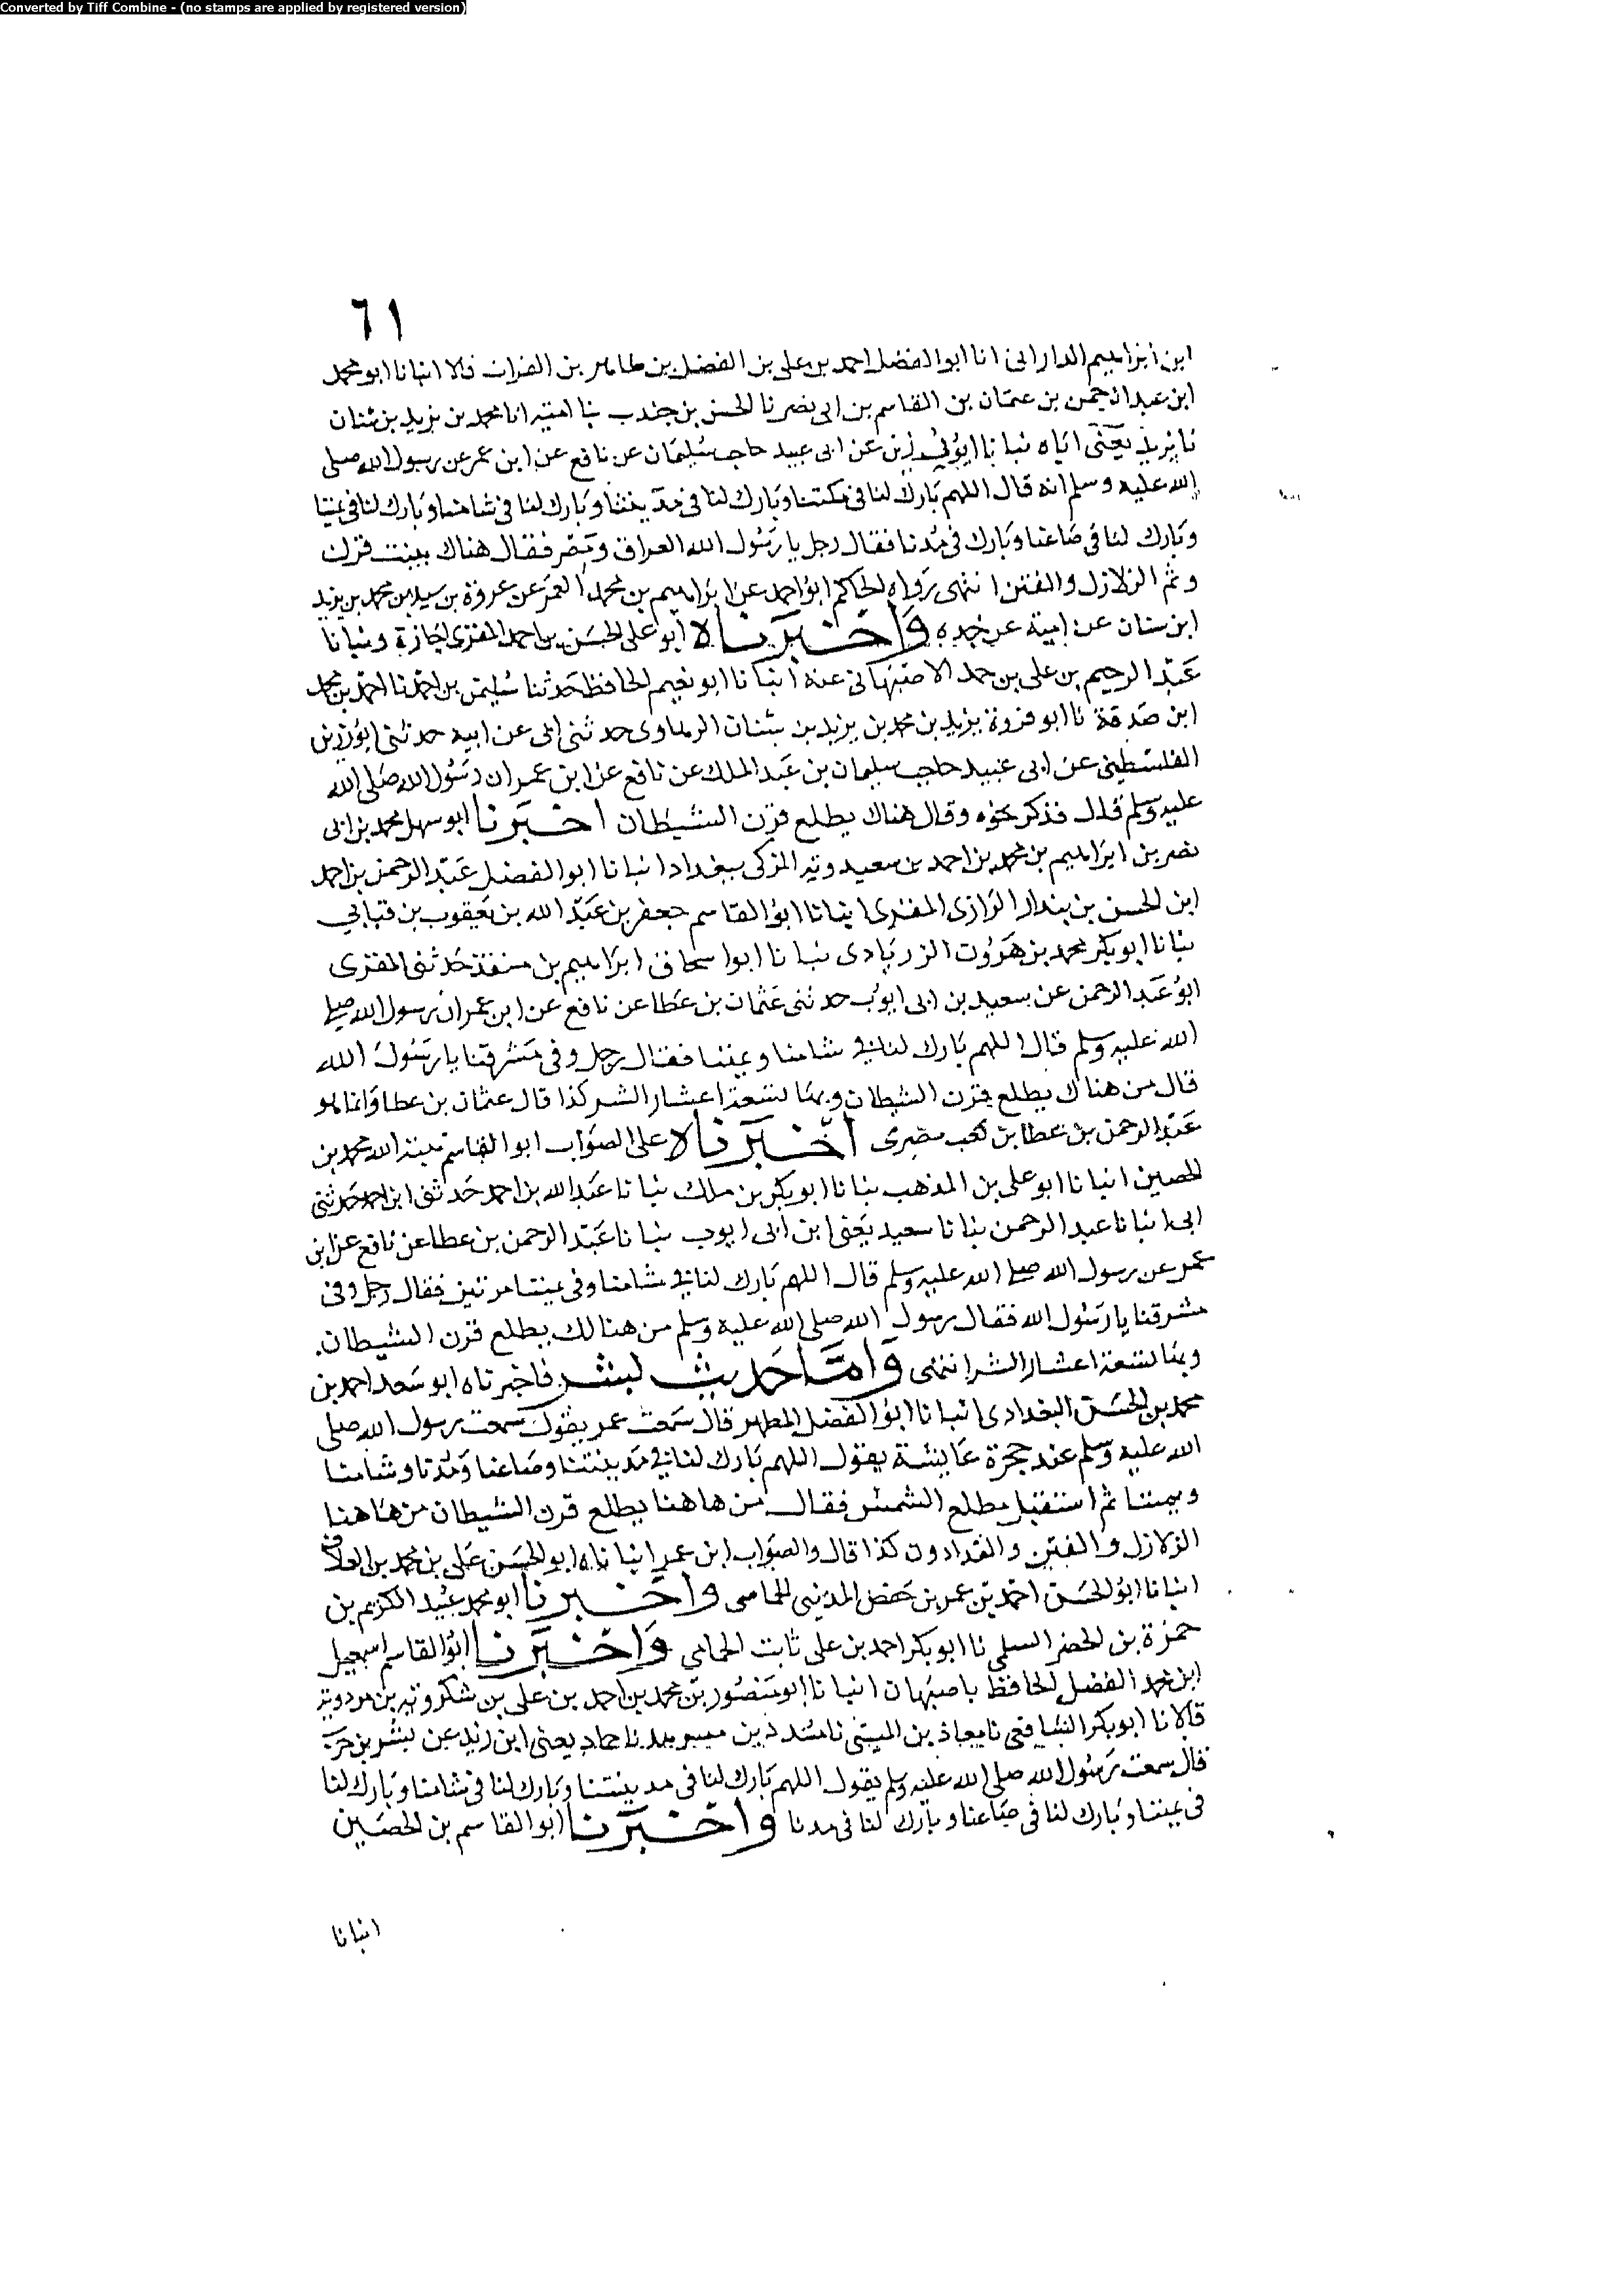 Converted by Tiff Combine - (no stamps are applied by registered version)
٦١
ابن ابراهيم الدارانى انا ابو الفضل احمد بن على بن الفضل بن طاهر بن الفرات قالا انبانا ابو محمد
ابن عبد الرحمن بن عثمان بن القاسم بن ابى نصر نا الحسن بن جندب نا انا محمد بن يزيد بن سنان
نا يزيد يعنى اباه نبانا ابو رزين عن ابى عبيد حاجب سليمان عن نافع عن ابن عمر عن رسول الله صلى
الله عليه وسلم انه قال اللهم بارك لنا فى مكتنا وبارك لنا فى مدينتنا وبارك لنا فى شامنا وبارك لنا فى يمننا
وبارك لنا فى صاعنا وبارك فى مدنا فقال رجل يا رسول الله العراق ومصر فقال هناك ينبت قرن
وثم الزلازل والفتن انتهى رواه الحاكم ابو احمد عن ابراهيم بن محمد العمر عن عروة بن محمد بن يزيد
ابن سنان عن ابيه عن جده واخبرناه ابو على الحسن بن احمد المقرى اجازة ونبانا
عبد الرحيم بن على بن حمد الاصبهانى عنه انبانا ابو نعيم الحافظ حدثنا سليمن بن احمد نا احمد بن محمد
ابن صدقة نا ابو فروة يزيد بن محمد بن يزيد بن سنان الرهاوى حدثنى ابى عن ابيه حدثنى ابو رزين
الفلسطينى عن ابى عبيد حاجب سليمان بن عبد الملك عن نافع عن ابن عمر ان رسول الله صلى الله
عليه وسلم قال فذكر نحوه وقال هناك يطلع قرن الشيطان اخبرنا ابو سهل محمد بن ابى
نصر بن ابراهيم بن محمد بن احمد بن سعيد المزكى ببغداد انبانا ابو الفضل عبد الرحمن بن احمد
ابن الحسن بن بندار الرازى المقرى انبانا ابو القاسم جعفر بن عبد الله بن يعقوب بن
نبانا ابو بكر محمد بن هرون نبانا ابو اسحاق ابراهيم بن منقذ حدثنى المقرى
ابو عبد الرحمن عن سعيد بن ابى ايوب حدثنى عثمان بن عطا عن نافع عن ابن عمر ان رسول الله صلى
الله عليه وسلم قال اللهم بارك لنا فى شامنا ويمننا فقال رجل وفى مشرقنا يا رسول الله
قال من هناك يطلع قرن الشيطان وبها تسعة اعشار الشر كذا قال عثمان بن عطا وانما هو
عبد الرحمن بن عطا بن كعب مصرى اخبرناه على الصواب ابو القاسم هبة الله محمد بن
الحصين انبانا ابو على بن المذهب نبانا ابو بكر بن ملك نبانا عبد الله بن احمد حدثنى
ابى انبانا عبد الرحمن نبانا سعيد يعنى ابن ابى ايوب نبانا عبد الرحمن بن عطا عن نافع عن ابن
عمر عن رسول الله صلى الله عليه وسلم قال اللهم بارك لنا فى شامنا وفى يمننا مرتين فقال رجل وفى
مشرقنا يا رسول الله فقال رسول الله صلى الله عليه وسلم من هنالك يطلع قرن الشيطان
وبها تسعة اعشار الشر انتهى واما حديث بشر فاخبرناه ابو سعد احمد بن
محمد بن الحسن البغدادى انبانا ابو الفضل المطهر قال سمعت عمر يقول سمعت رسول الله صلى
الله عليه وسلم عند حجرة عايشة يقول اللهم بارك لنا فى مدينتنا وصاعنا ومدنا وشامنا
ويمننا ثم استقبل مطلع الشمس فقال من هاهنا يطلع قرن الشيطان من هاهنا
الزلازل والفتن والفدادون كذا قال والصواب ابن عمر انبا ناه ابو الحسن على بن محمد بن العلاف
انبانا ابو الحسن احمد بن عمر بن حفص الحمامى واخبرنا ابو محمد عبد الكريم بن
حمزة بن الخضر السلمى نا ابو بكر احمد بن على ثابت الحامى واخبرنا ابو القاسم اسمعيل
ابن محمد الفضل الحافظ باصبهان انبانا ابو منصور بن محمد بن احمد بن على بن شكرويه بن مردويه
قالا نا ابو بكر الشافعى نا معاذ بن المثنى نا مسدد بن مسرهد نا حماد يعنى ابن زيد عن بشر بن حرب
قال سمعت رسول الله صلى الله عليه وسلم يقول اللهم بارك لنا فى مدينتنا وبارك لنا فى شامنا وبارك لنا
فى يمننا وبارك لنا فى صاعنا وبارك لنا فى مدنا واخبرنا ابو القاسم بن الحصين
انبانا